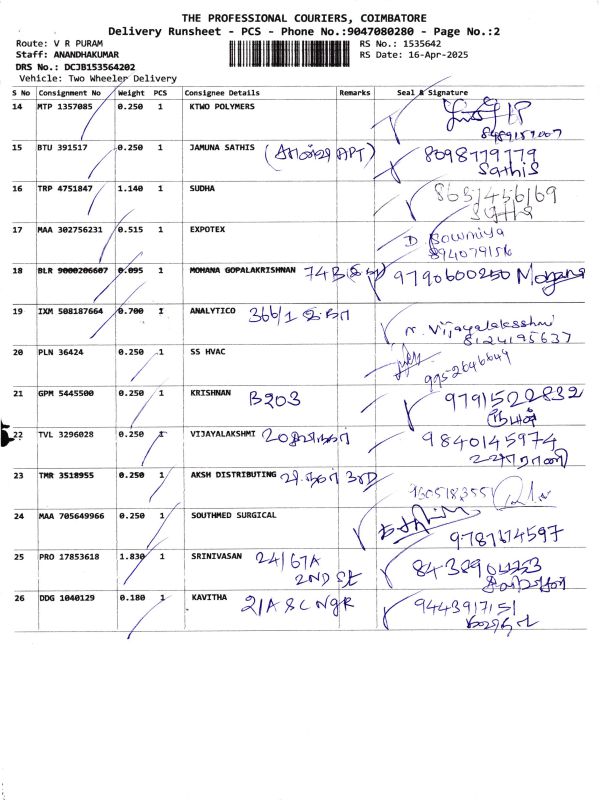 THE PROFESSIONAL COURIERS, COIMBATORE
Delivery Runsheet - PCS - Phone No.:9047080280 - Page No.:2
Route: V R PURAM RS No.: 1535642
Staff: ANANDHAKUMAR RS Date: 16-Apr-2025
DRS No.: DCJB153564202
Vehicle: Two Wheeler Delivery
S No Consignment No Weight PCS Consignee Details Remarks Seal & Signature
14 MTP 1357085 0.250 1 KTWO POLYMERS
15 BTU 391517 0.250 1 JAMUNA SATHIS APT) 8098779779
Sathis
16 TRP 4751847 1.140 1 SUDHA
17 MAA 302756231 0.515 1 EXPOTEX D Sowmiya
18 BLR 9000206607 0.095 1 MOHANA GOPALAKRISHNAN 74B 9790600250 Mohana
19 IXM 508187664 0.700 1 ANALYTICO 366/1 r. Vijayalakshmi
8124195637
20 PLN 36424 0.250 1 SS HVAC
9952646649
21 GPM 5445500 0.250 1 KRISHNAN B203 9791522832
22 TVL 3296028 0.250 1 VIJAYALAKSHMI 9840145974
உஷாராணி
23 TMR 3518955 0.250 1 AKSH DISTRIBUTING 3RD
24 MAA 705649966 0.250 1 SOUTHMED SURGICAL 9787674597
25 PRO 17853618 1.830 1 SRINIVASAN 24/67A
2ND St
26 DDG 1040129 0.180 1 KAVITHA 21A S C NgR 9443917151